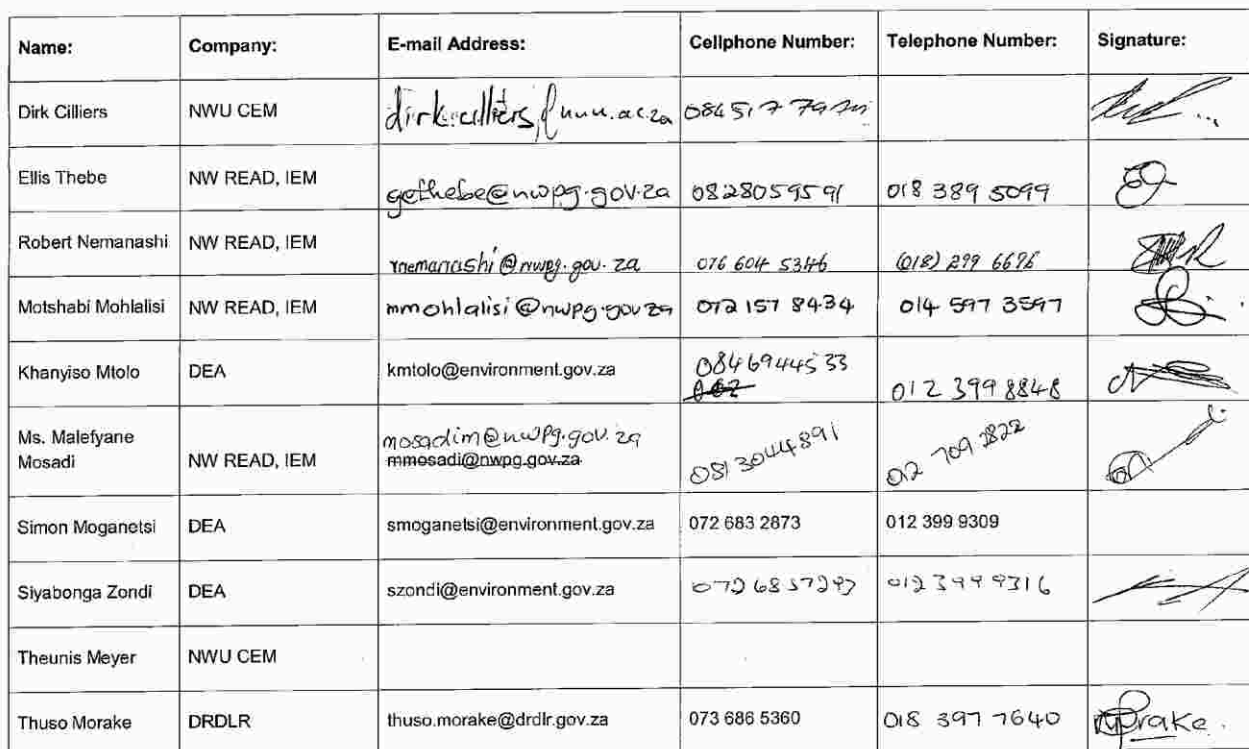 Name: Company: E-mail Address: Cellphone Number: Telephone Number: Signature:
Dirk Cilliers NWU CEM
Ellis Thebe NW READ, IEM gethebe@nwpg.gov.za 0828059591 018 389 5099
Robert Nemanashi NW READ, IEM rnemanashi@nwpg.gov.za 076 604 5346 (018) 299 6696
Motshabi Mohlalisi NW READ, IEM mmohlalisi@nwpg.gov.za 072 157 8434 014 597 3597
0846944533
Khanyiso Mtolo DEA kmtolo@environment.gov.za 012 399 8848
Ms. Malefyane mosadim@nwpg.gov.za
Mosadi NW READ, IEM mmosadi@nwpg.gov.za 0813044891 012 709 2822
Simon Moganetsi DEA smoganetsi@environment.gov.za 072 683 2873 012 399 9309
Siyabonga Zondi DEA szondi@environment.gov.za 012 399 9316
Theunis Meyer NWU CEM
Thuso Morake DRDLR thuso.morake@drdlr.gov.za 073 686 5360 018 397 7640 Morake.